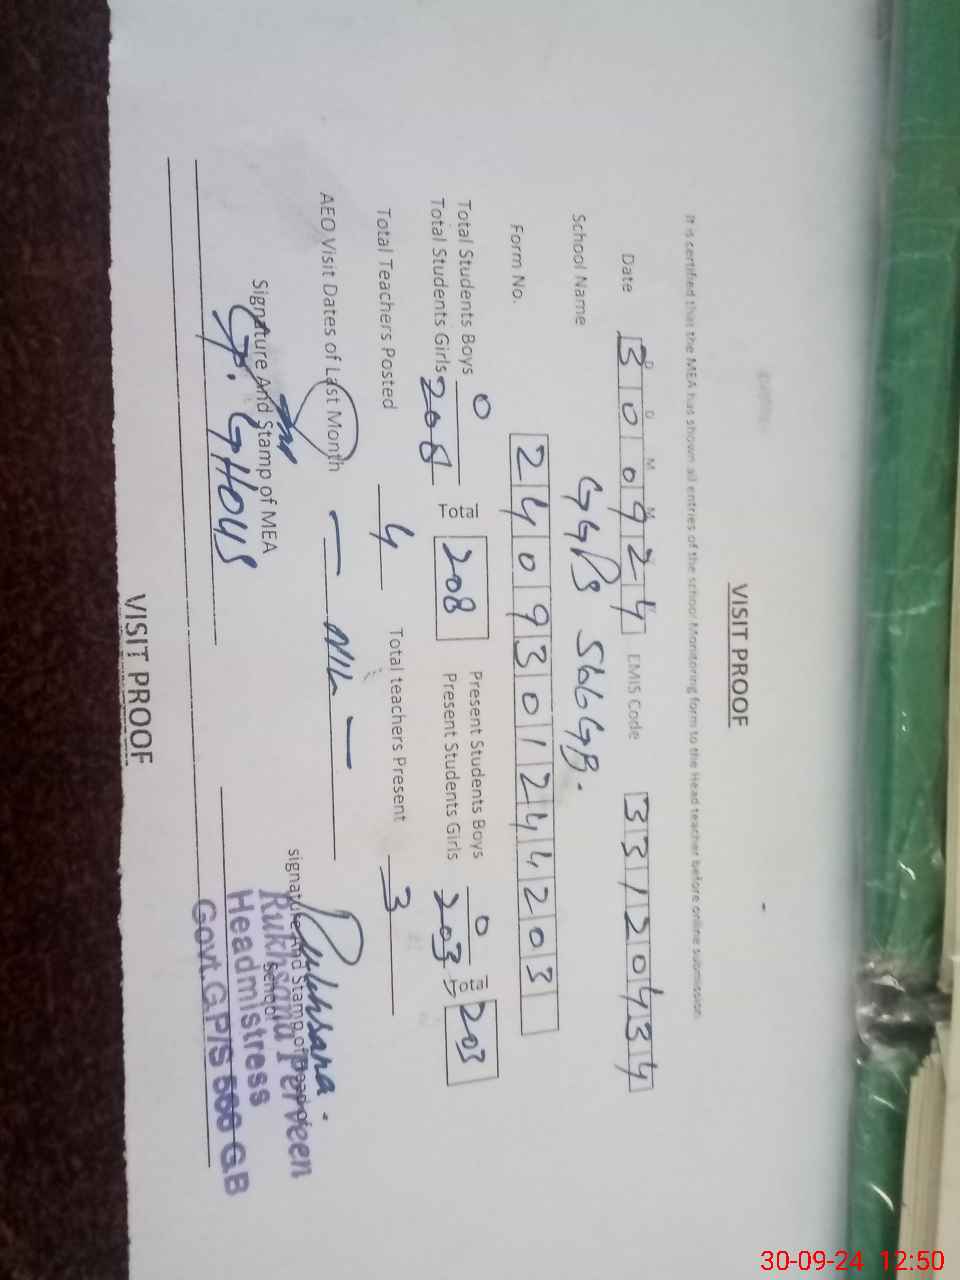 VISIT PROOF
It is certified that the MEA has shown all entries of the school Monitoring form to the Head teacher before online submission.
D D M M
Date 300924 EMIS Code 33120434
School Name GGPS 566GB.
Form No. 2409301244203
Total Students Boys 0 Total 208 Present Students Boys 0 Total 203
Total Students Girls 208 Present Students Girls 203
Total Teachers Posted 4 Total teachers Present 3
AEO Visit Dates of Last Month — NIL —
Signature And Stamp of MEA signature And Stamp of Head of School
G. GHOUS Rukhsana.
Rukhsana Perveen
Headmistress
Govt.GP/S 566 GB
VISIT PROOF
30-09-24 12:50